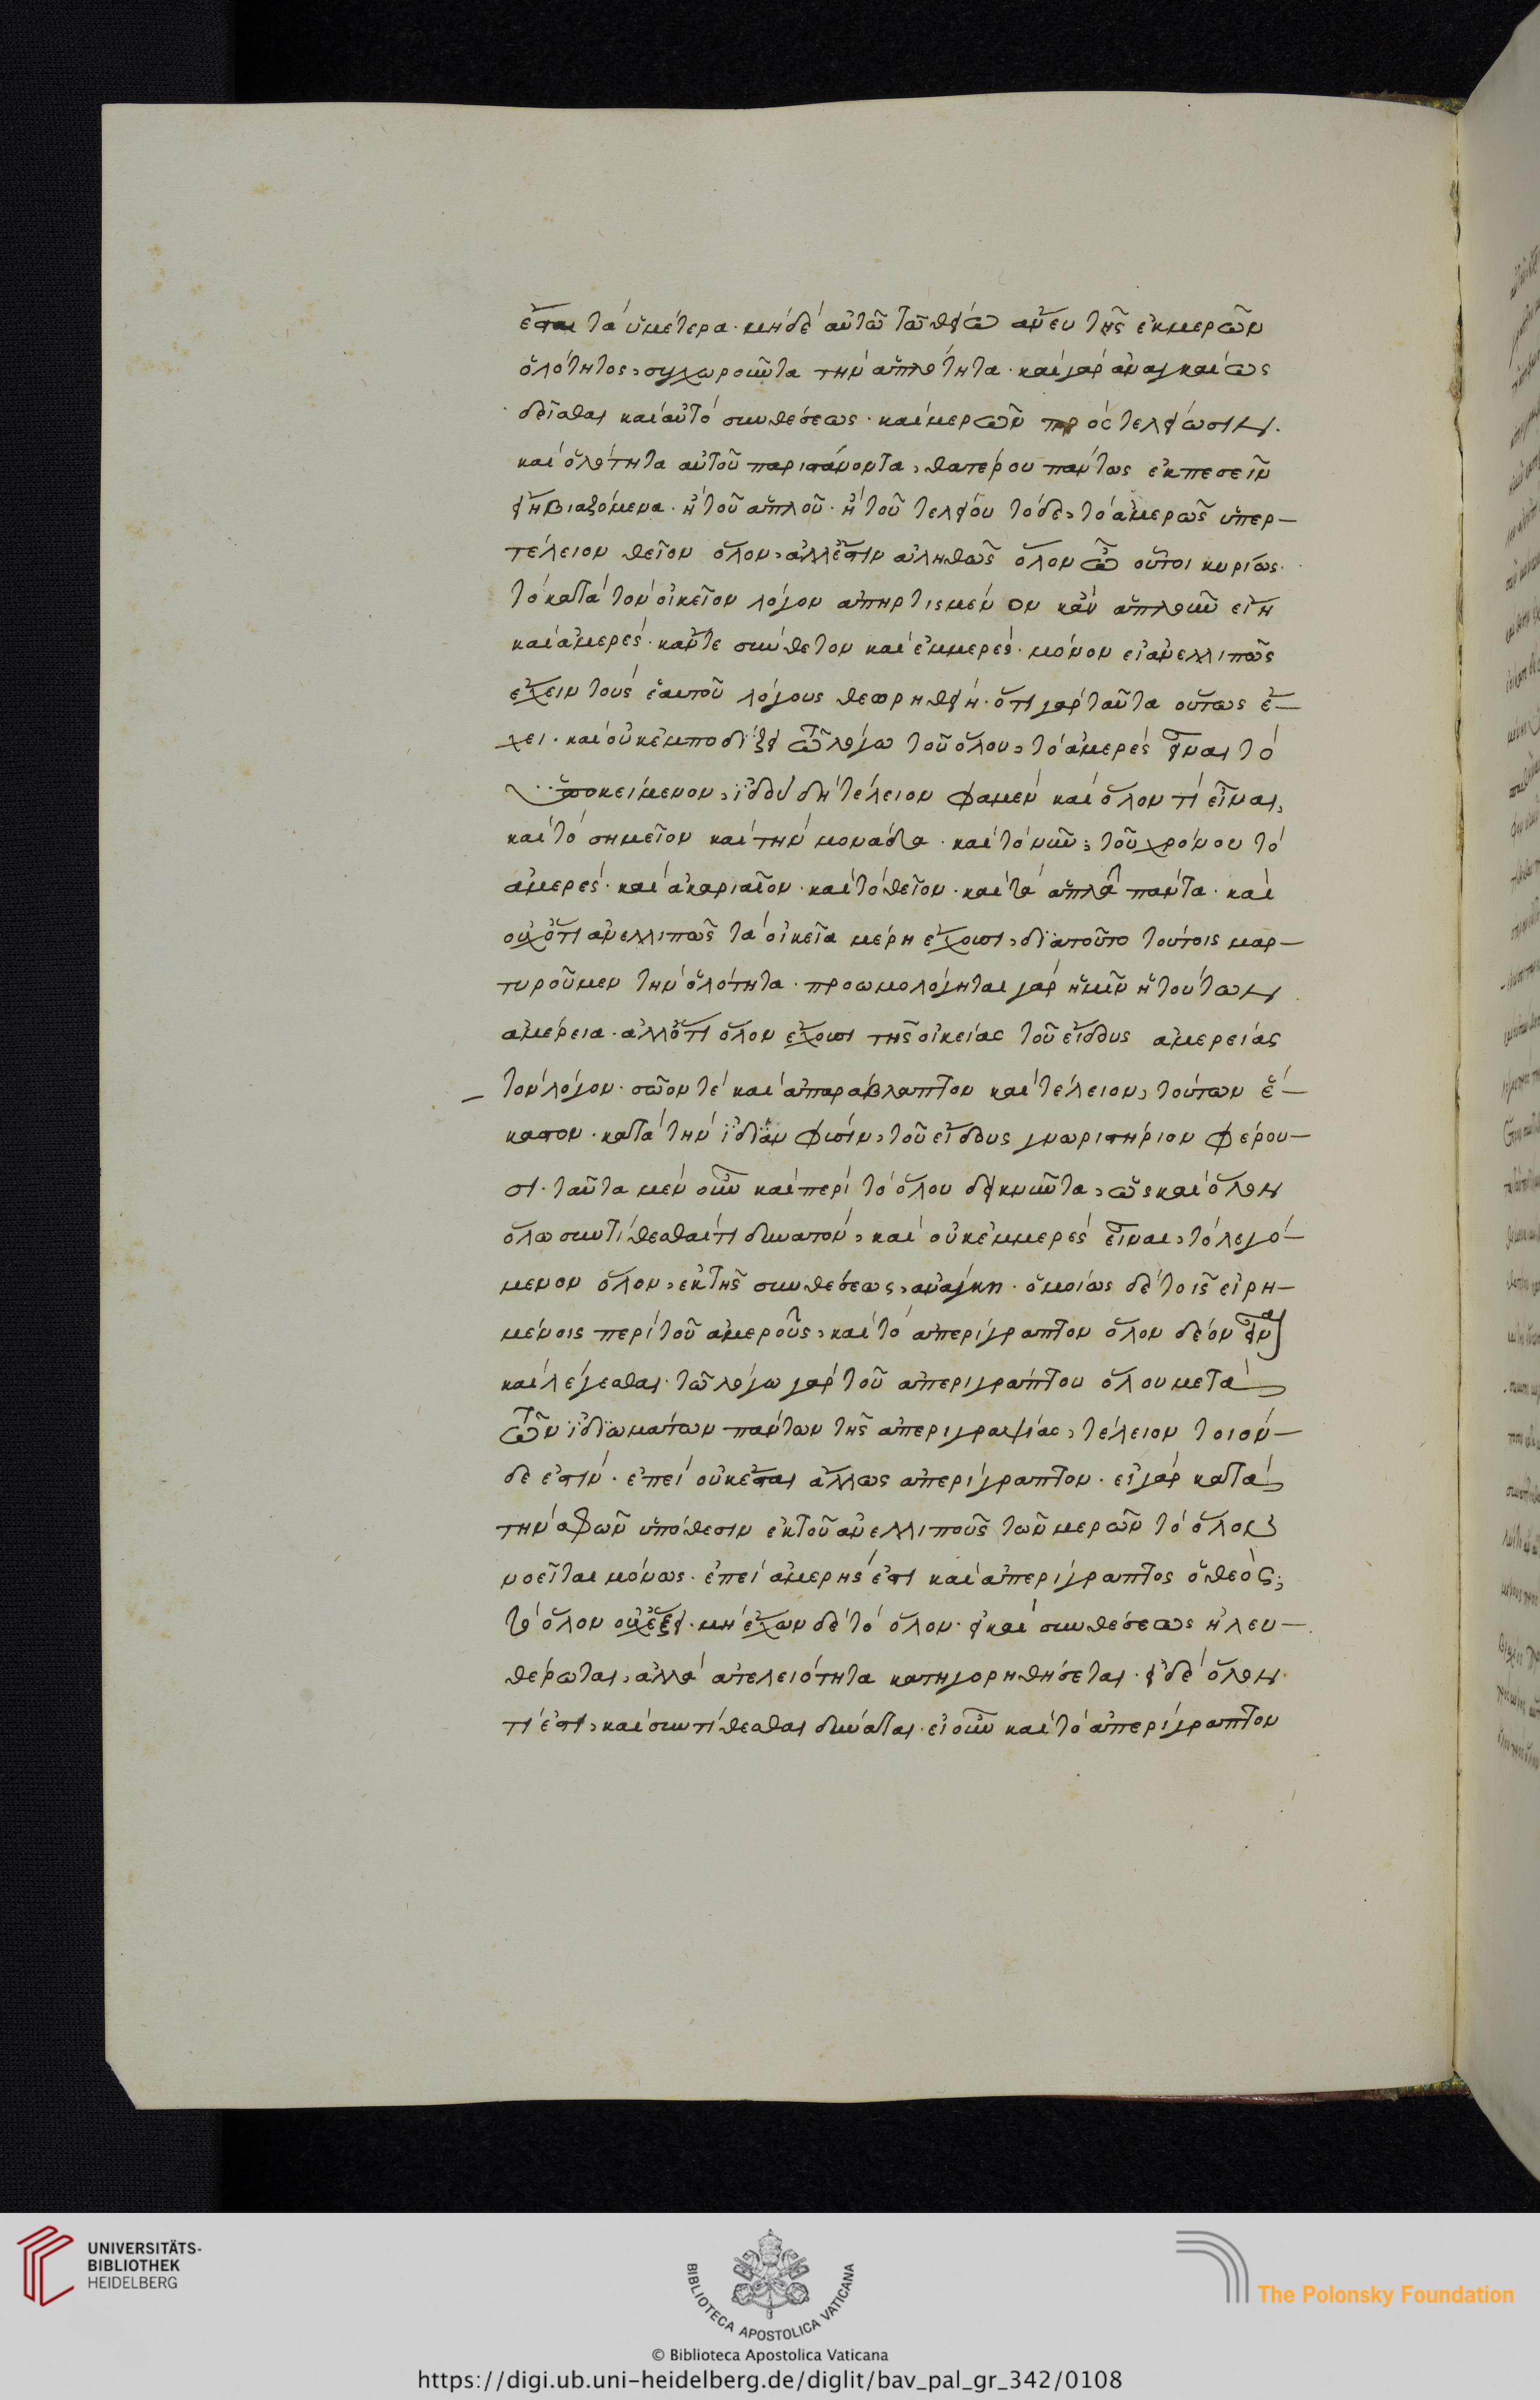 ἔσται τὰ ὑμέτερα· μηδὲ αὐτῶ τῶ θείω ἄνευ τῆς ἐκ μερῶν
ὁλότητος, συγχωροῦντα τὴν ἁπλότητα· καὶ γὰρ ἀναγκαίως
δεῖσθαι καὶ αὐτὸ συνθέσεως· καὶ μερῶν πρὸς τελείωσιν·
καὶ ὁλότητα αὐτοῦ παριστάνοντα, θατέρου πάντως ἐκπεσεῖν
εἴη βιαζόμενα· ἢ τοῦ ἁπλοῦ· ἢ τοῦ τελείου τόδε, τὸ ἀμερῶς ὑπερ–
τέλειον θεῖον ὅλον, ἀλλ' ἔστιν ἀληθῶς ὅλον ὦ οὗτοι κυρίως·
τὸ κατὰ τὸν οἰκεῖον λόγον ἀπηρτισμένον κἂν ἁπλοῦν εἴη
καὶ ἀμερές· κἄν τε σύνθετον καὶ ἐμμερές· μόνον εἰ ἀνελλιπῶς
ἔχειν τοὺς ἑαυτοῦ λόγους θεωρηθείη· ὅτι γὰρ ταῦτα οὕτως ἔ–
χει· καὶ οὐκ ἐμποδίζει τῶ λόγω τοῦ ὅλου, τὸ ἀμερὲς εἶναι τὸ
ὑποκείμενον, ἰδοὺ δὴ τέλειον φαμὲν καὶ ὅλον τί εἶναι,
καὶ τὸ σημεῖον καὶ τὴν μονάδα· καὶ τὸ νῦν, τοῦ χρόνου τὸ
ἀμερές· καὶ ἀκαριαῖον· καὶ τὸ θεῖον· καὶ τὰ ἁπλᾶ πάντα· καὶ
οὐχ ὅτι ἀνελλιπῶς τὰ οἰκεῖα μέρη ἔχουσι, διατοῦτο τούτοις μαρ–
τυροῦμεν τὴν ὁλότητα· προωμολόγηται γὰρ ἡμῖν ἡ τούτων
ἀμέρεια· ἀλλ' ὅτι ὅλον ἔχουσι τῆς οἰκείας τοῦ εἴδους ἀμερείας
τὸν λόγον· σῶον τὲ καὶ ἀπαράβλαπτον καὶ τέλειον, τούτων ἕ–
καστον· κατὰ τὴν ἰδίαν φύσιν, τοῦ εἴδους γνωριστήριον φέρου–
σι· ταῦτα μὲν οὖν καὶ περὶ τὸ ὅλου δεικνῦντα, ὡς καὶ ὅλον
ὅλω συντίθεσθαί τι δυνατόν, καὶ οὐκ ἐμμερὲς εἶναι, τὸ λεγό–
μενον ὅλον, ἐκ τῆς συνθέσεως, ἀνάγκη· ὁμοίως δὲ τοῖς εἰρη–
μένοις περὶ τοῦ ἀμεροῦς, καὶ τὸ ἀπερίγραπτον ὅλον δέον εἶναι
καὶ λέγεσθαι· τῶ λόγω γὰρ τοῦ ἀπεριγράπτου ὅλου μετὰ
τῶν ἰδιωμάτων πάντων τῆς ἀπεριγραψίας, τέλειον τοιόν–
δε ἐστίν· ἐπεὶ οὐκ ἔσται ἄλλως ἀπερίγραπτον· εἰ γὰρ κατὰ
τὴν σφῶν ὑπόθεσιν ἐκ τοῦ ἀνελλιποῦς τῶν μερῶν τὸ ὅλον
νοεῖται μόνως· ἐπεὶ ἀμερής ἐστι καὶ ἀπερίγραπτος ὁ θεὸς;
τὸ ὅλον οὐχ ἕξει· μὴ ἔχων δὲ τὸ ὅλον· εἰ καὶ συνθέσεως ἠλευ–
θέρωται, ἀλλὰ ἀτελειότητα κατηγορηθήσεται· εἰ δὲ ὅλον
τί ἐστι, καὶ συντίθεσθαι δύναται· εἰ οὖν καὶ τὸ ἀπερίγραπτον
UNIVERSITÄTS-
BIBLIOTHEK
HEIDELBERG
BIBLIOTECA APOSTOLICA VATICANA
The Polonsky Foundation
© Biblioteca Apostolica Vaticana
https://digi.ub.uni-heidelberg.de/diglit/bav_pal_gr_342/0108